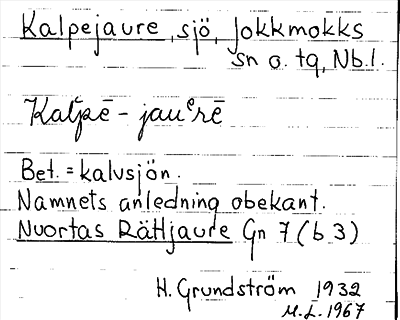 Kalpejaure, sjö, Jokkmokks
sn o. tg, Nb.l.
Kalpē - jauᵉrē
Bet. = kalvsjön.
Namnets anledning obekant.
Nuortas Rättjaure Gn 7 (b 3)
H. Grundström 1932
M.L. 1967